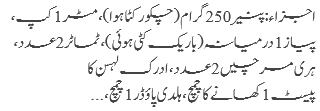 اجزاء: پنیر 250 گرام (چکور کٹا ہوا)، مٹر 1 کپ،
پیاز 1 درمیانہ (باریک کٹی ہوئی)، ٹماٹر 2 عدد،
ہری مرچیں 2 عدد، ادرک لہسن کا
پیسٹ 1 کھانے کا چمچ، ہلدی پاؤڈر 1 چمچ، ...